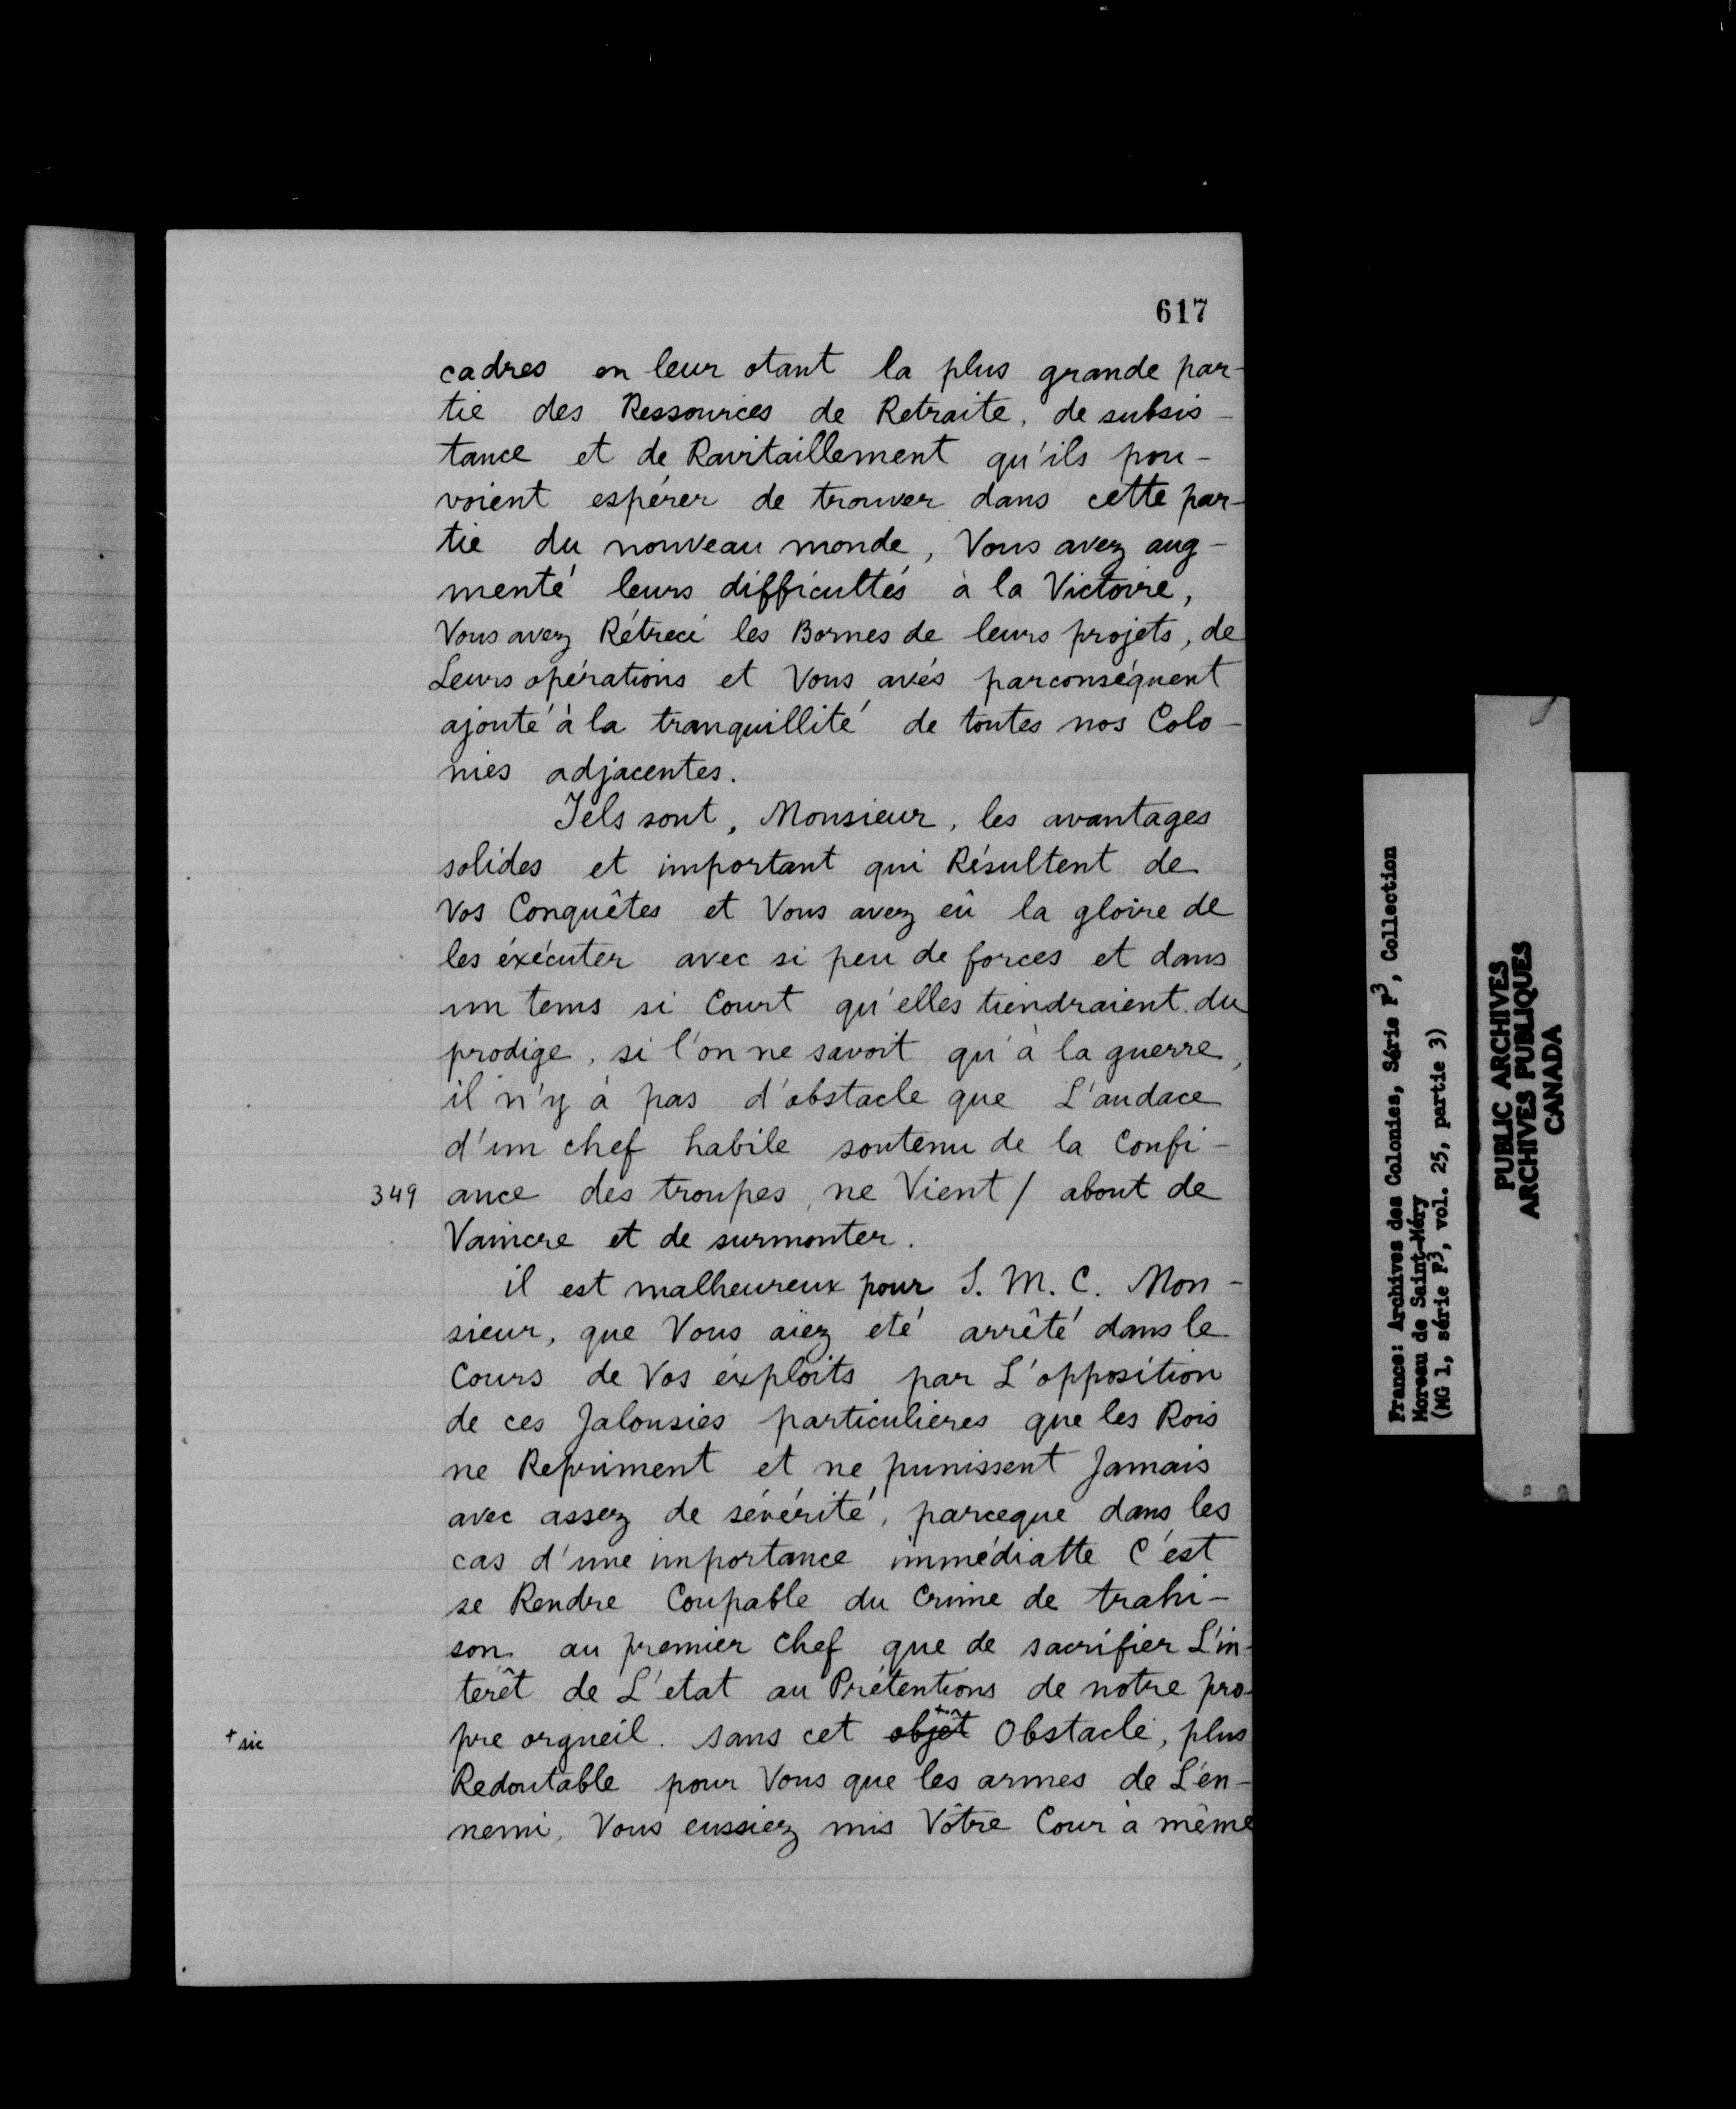 617
cadres en leur otant la plus grande par-
tie des Ressources de Retraite, de subsis-
tance et de Ravitaillement qu'ils pou-
voient espérer de trouver dans cette par-
tie du nouveau monde, Vous avez aug-
menté leurs difficultés à la Victoire,
Vous avez Rétreci les Bornes de leurs projets, de
Leurs opérations et Vous avés parconséquent
ajouté à la tranquillité de toutes nos Colo-
nies adjacentes.
Tels sont, Monsieur, les avantages
solides et important qui Résultent de
Vos Conquêtes et Vous avez eû la gloire de
les éxécuter avec si peu de forces et dans
un tems si Court qu'elles tiendraient du
prodige, si l'on ne savoit qu'à la guerre,
il n'y a pas d'obstacle que L'audace
d'un chef habile soutenu de la Confi-
349 ance des troupes, ne Vient / about de
Vaincre et de surmonter.
il est malheureux pour S. M. C. Mon-
sieur, que Vous aïez eté arrêté dans le
Cours de Vos éxploits par L'opposition
de ces Jalousies particulieres que les Rois
ne Repriment et ne punissent Jamais
avec assez de sévérité, parceque dans les
cas d'une importance immédiatte C'est
se Rendre Coupable du Crime de trahi-
son au premier Chef que de sacrifier L'in-
terêt de L'etat au Prétentions de notre pro-
+ sic pre orgueil. sans cet objêt + Obstacle, plus
Redoutable pour Vous que les armes de L'en-
nemi, Vous eussiez mis Vôtre Cour à même
France: Archives des Colonies, Série F3, Collection
Moreau de Saint-Méry
(MG 1, série F3, vol. 25, partie 3)
PUBLIC ARCHIVES
ARCHIVES PUBLIQUES
CANADA